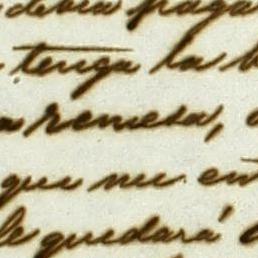 debia paga
tenga la
remesa,
que me en
le quedará